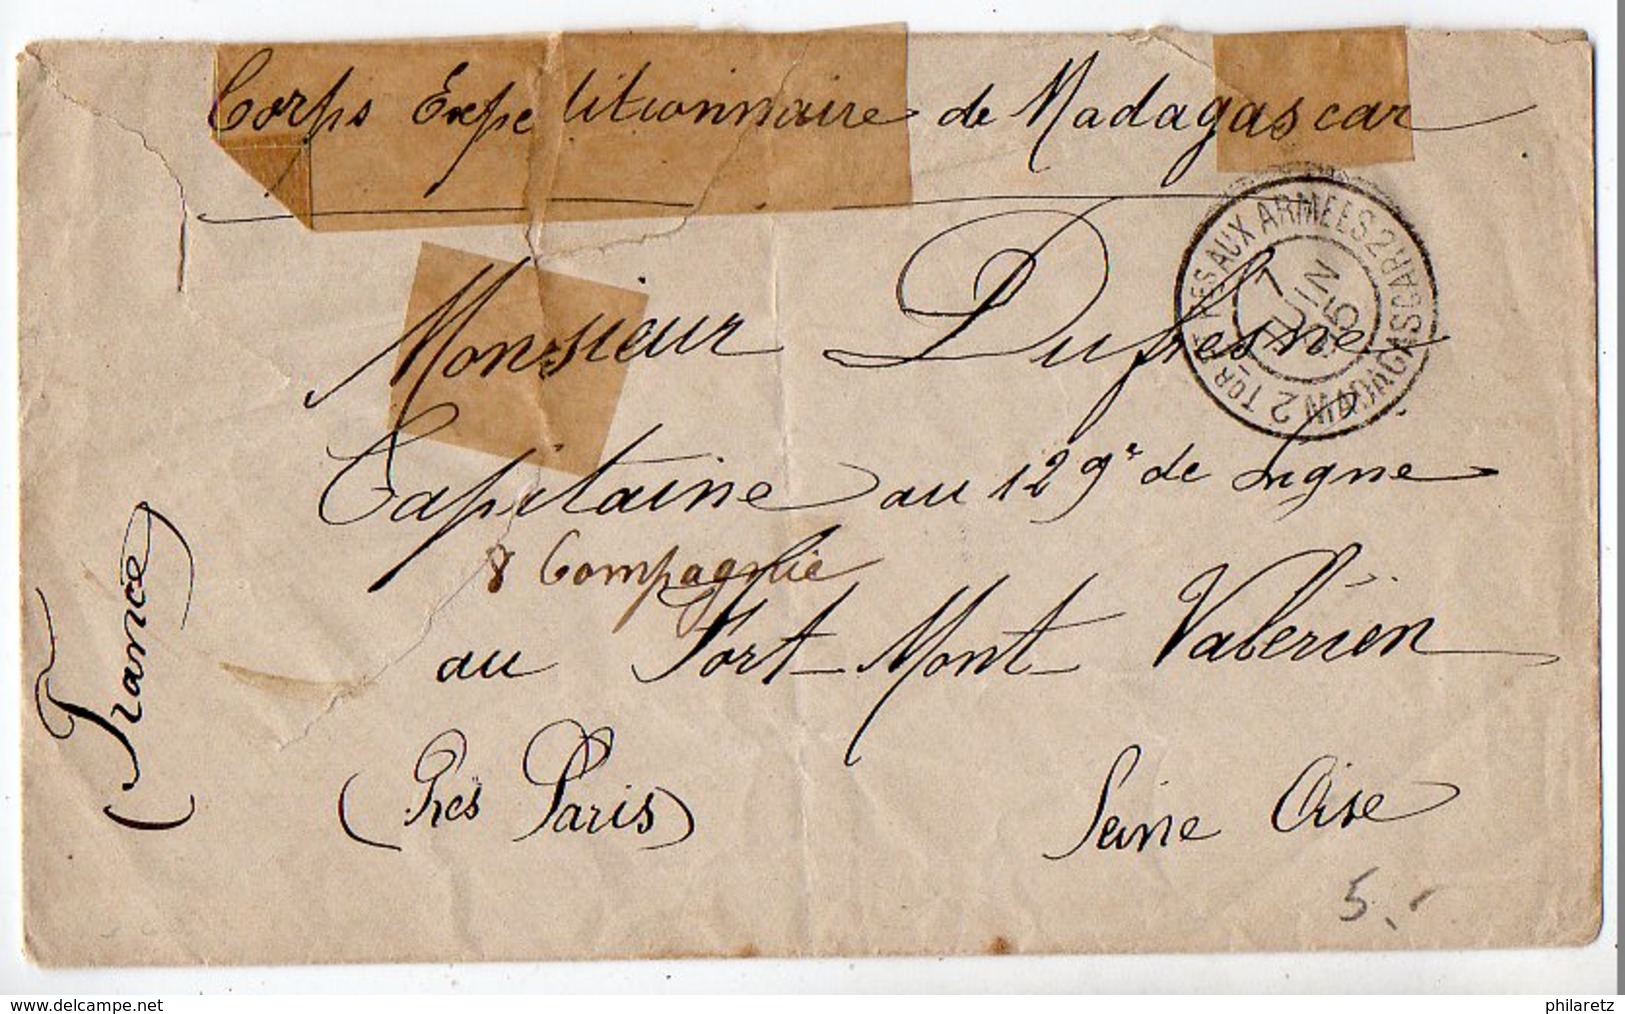 Corps Expeditionnaire de Madagascar
TOR ET P ES AUX ARMEES 2
MADAGASCAR 2
7
JUIN
95
Monsieur Dufresne
Capitaine au 129e de Ligne
8 Compagnie
au Fort Mont Valérien
(Près Paris)
Seine Oise
(France)
5.-
www.delcampe.net
philaretz